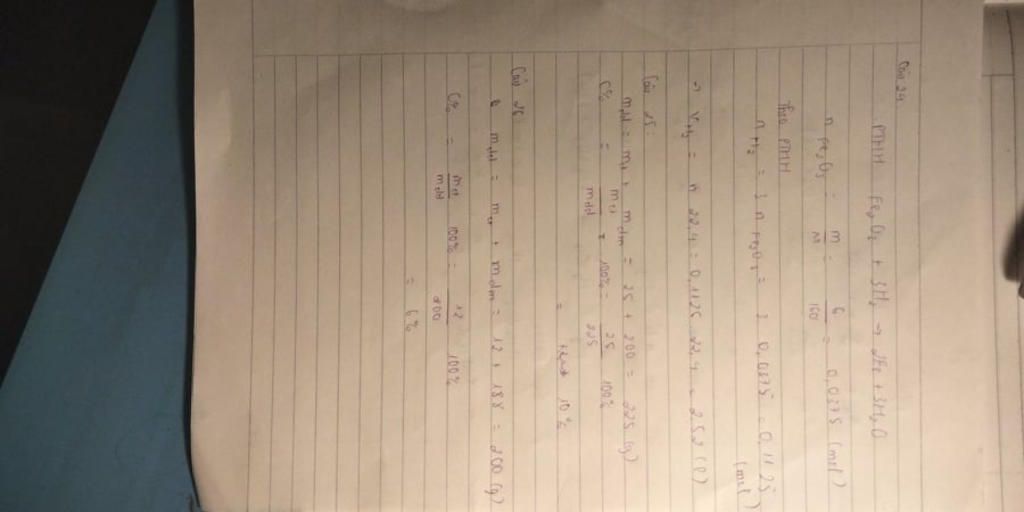 Câu 24
PTHH Fe2O3 + 3H2 → 2Fe + 3H2O
n Fe2O3 = m/M = 6/160 = 0,0375 (mol)
Theo PTHH
n H2 = 3 n Fe2O3 = 3 0,0375 = 0,1125 (mol)
→ VH2 = n 22,4 = 0,1125 22,4 = 2,52 (l)
Câu 25:
mdd = mct + mdm = 25 + 200 = 225 (g)
C% = mct/mdd × 100% = 25/225 100%
= 10%
Câu 26:
mdd = mct + mdm = 12 + 188 = 200 (g)
C% = mct/mdd 100% = 12/200 100%
= 6%